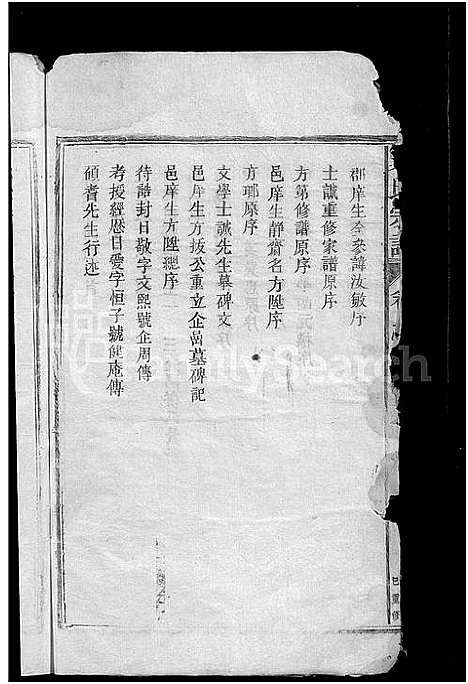 郡庠生全參諱汝敏序
士誠重修家譜原序
方第修譜原序
邑庠生靜齋名方陞序
方瑯原序
文學士誠先生墓碑文
邑庠生方拔公重立企嵒墓碑記
邑庠生方陞總序
待誥封日敬字文熙號企周傳
考授經歷日愛字恒子號健庵傳
碩耆先生行述
氏宗譜
巳重修
FamilySearch